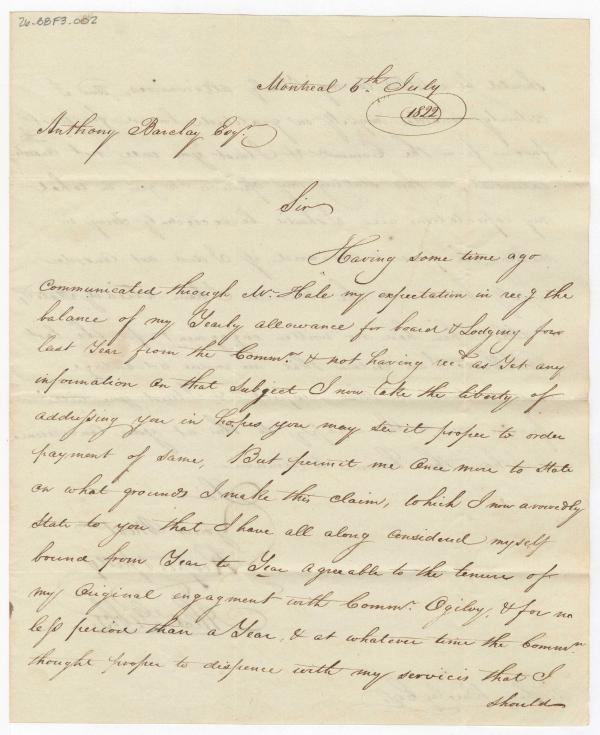 26-BBF3.002
Montreal 6th. July
1822
Anthony Barclay Esqr.
Sir
Having some time ago
Communicated through Mr. Hale my expectation in recg. the
balance of my Yearly allowance for board & Lodging for
last Year from the Commrs. & not having recd. as Yet any
information on that Subject I now take the liberty of
addressing you in hopes you may see it proper to order
payment of same, But permit me Once more to State
on what grounds I make this claim, which I now avowedly
State to you that I have all along considered myself
bound from Year to Year agreable to the tenure of
my Original engagment with Commr. Ogilvy, & for no
less period than a Year, & at whatever time the Commrs.
thought proper to dispence with my servicis that I
should